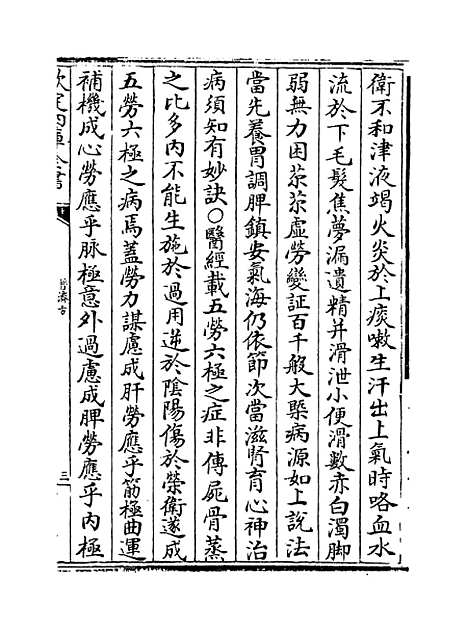 衛不和津液竭火炎於上痰嗽生汗出上氣時咯血水
流於下毛髮焦夢漏遺精并滑泄小便滑數赤白濁脚
弱無力困苶苶虛勞變証百千般大槩病源如上說法
當先養胃調脾鎮安氣海仍依節次當滋腎育心神治
病須知有妙訣○醫經載五勞六極之症非傳屍骨蒸
之比多內不能生施於過用逆於陰陽傷於榮衛遂成
五勞六極之病焉蓋勞力謀慮成肝勞應乎筋極曲運
補機成心勞應乎脉極意外過慮成脾勞應乎內極
欽定四庫全書
普濟方
三